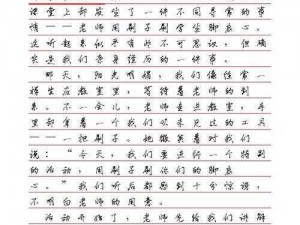 课堂上却发生了一件不同寻常的事
情——老师用刷子刷学生脚底心。
这听起来似乎有些不可思议，但确
实是我们亲身经历的一件事。
那天，阳光明媚，我们像往常一
样坐在教室里，等待着老师的到
来。不一会儿，老师走进教室，手
里却拿着一个我们从未见过的工具
———把刷子。她微笑着对我们
说：“今天，我们要进行一个特别
的活动，用刷子刷你们的脚底
心。”我们听后都感到十分惊讶，
不明白老师的用意。
活动开始了，老师先给我们讲解